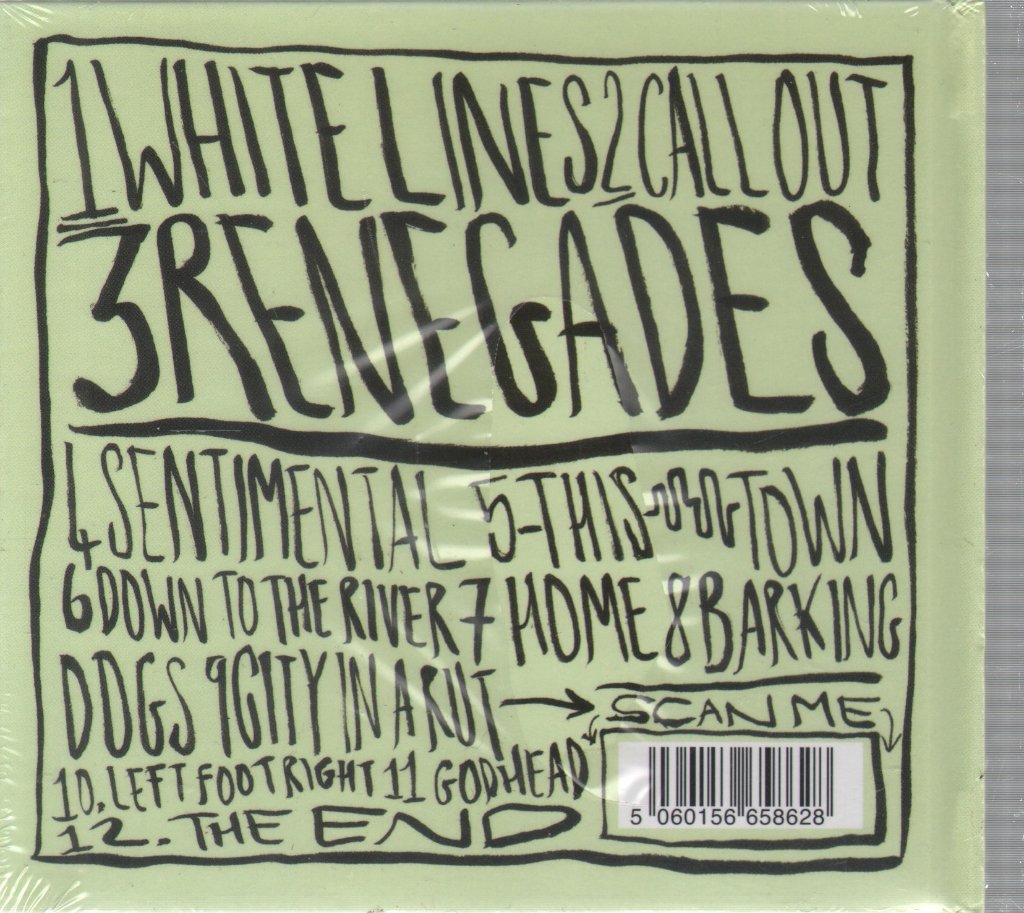 1 WHITE LINES 2 CALL OUT
3 RENEGADES
4 SENTIMENTAL 5-THIS TOWN
6 DOWN TO THE RIVER 7 HOME 8 BARKING
DOGS 9 CITY IN A RUT
SCAN ME
10. LEFT FOOT RIGHT 11 GODHEAD
12. THE END
5 060156 658628